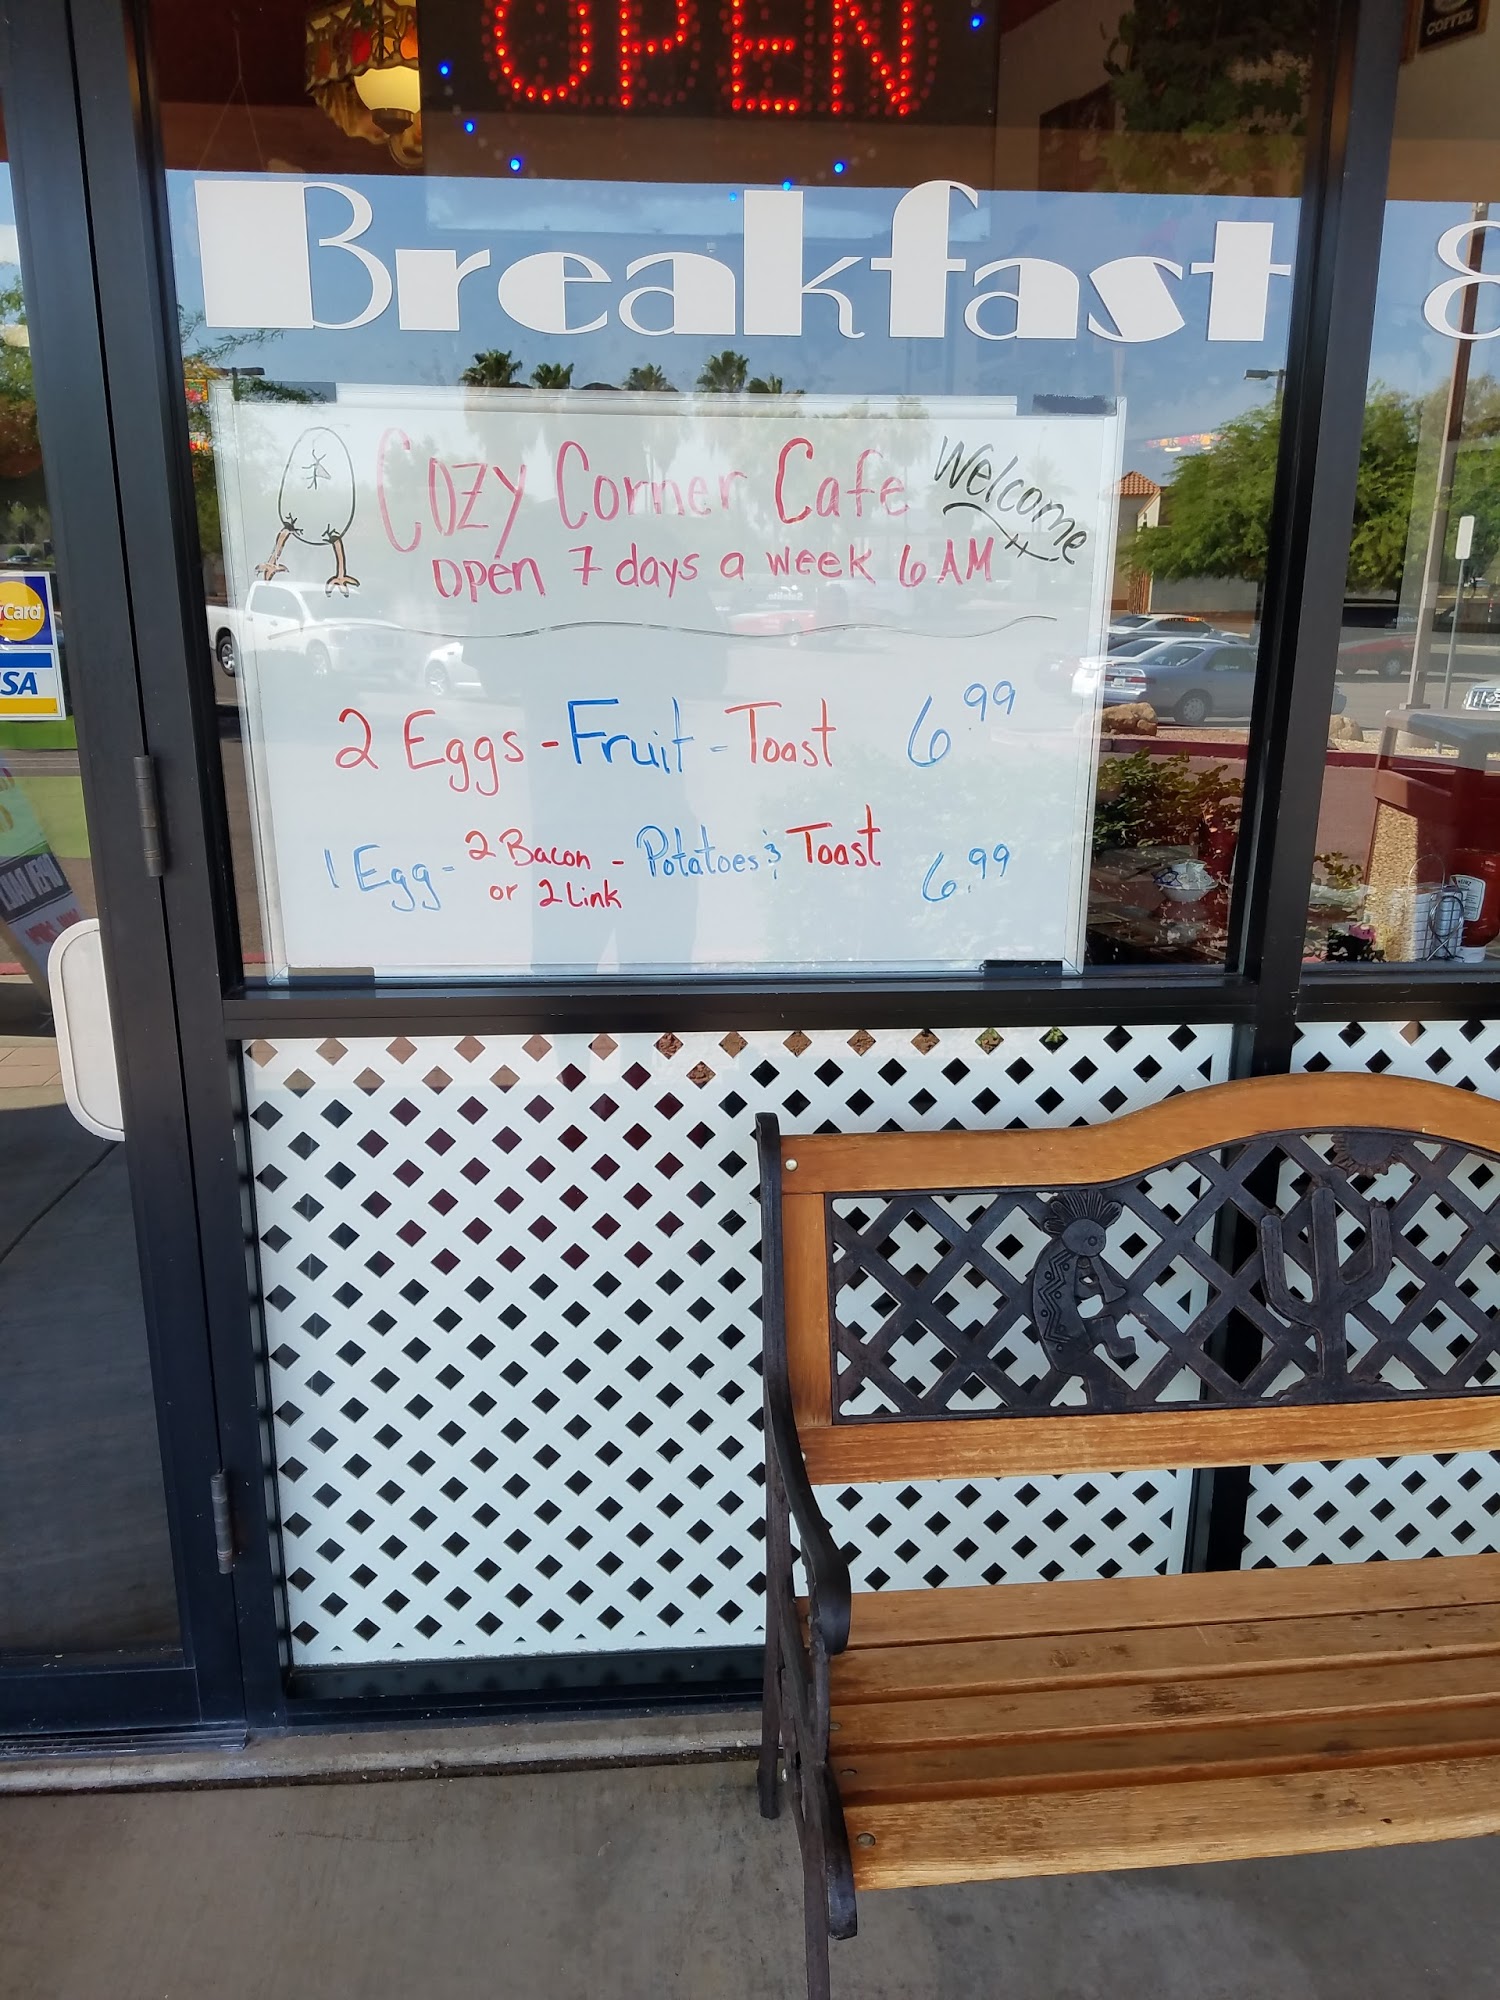 OPEN
COFFEE
Breakfast &
Cozy Corner Cafe Welcome
open 7 days a week 6 AM
2 Eggs - Fruit - Toast 6.99
1 Egg - 2 Bacon - Potatoes & Toast 6.99
or 2 Link
rCard
ISA